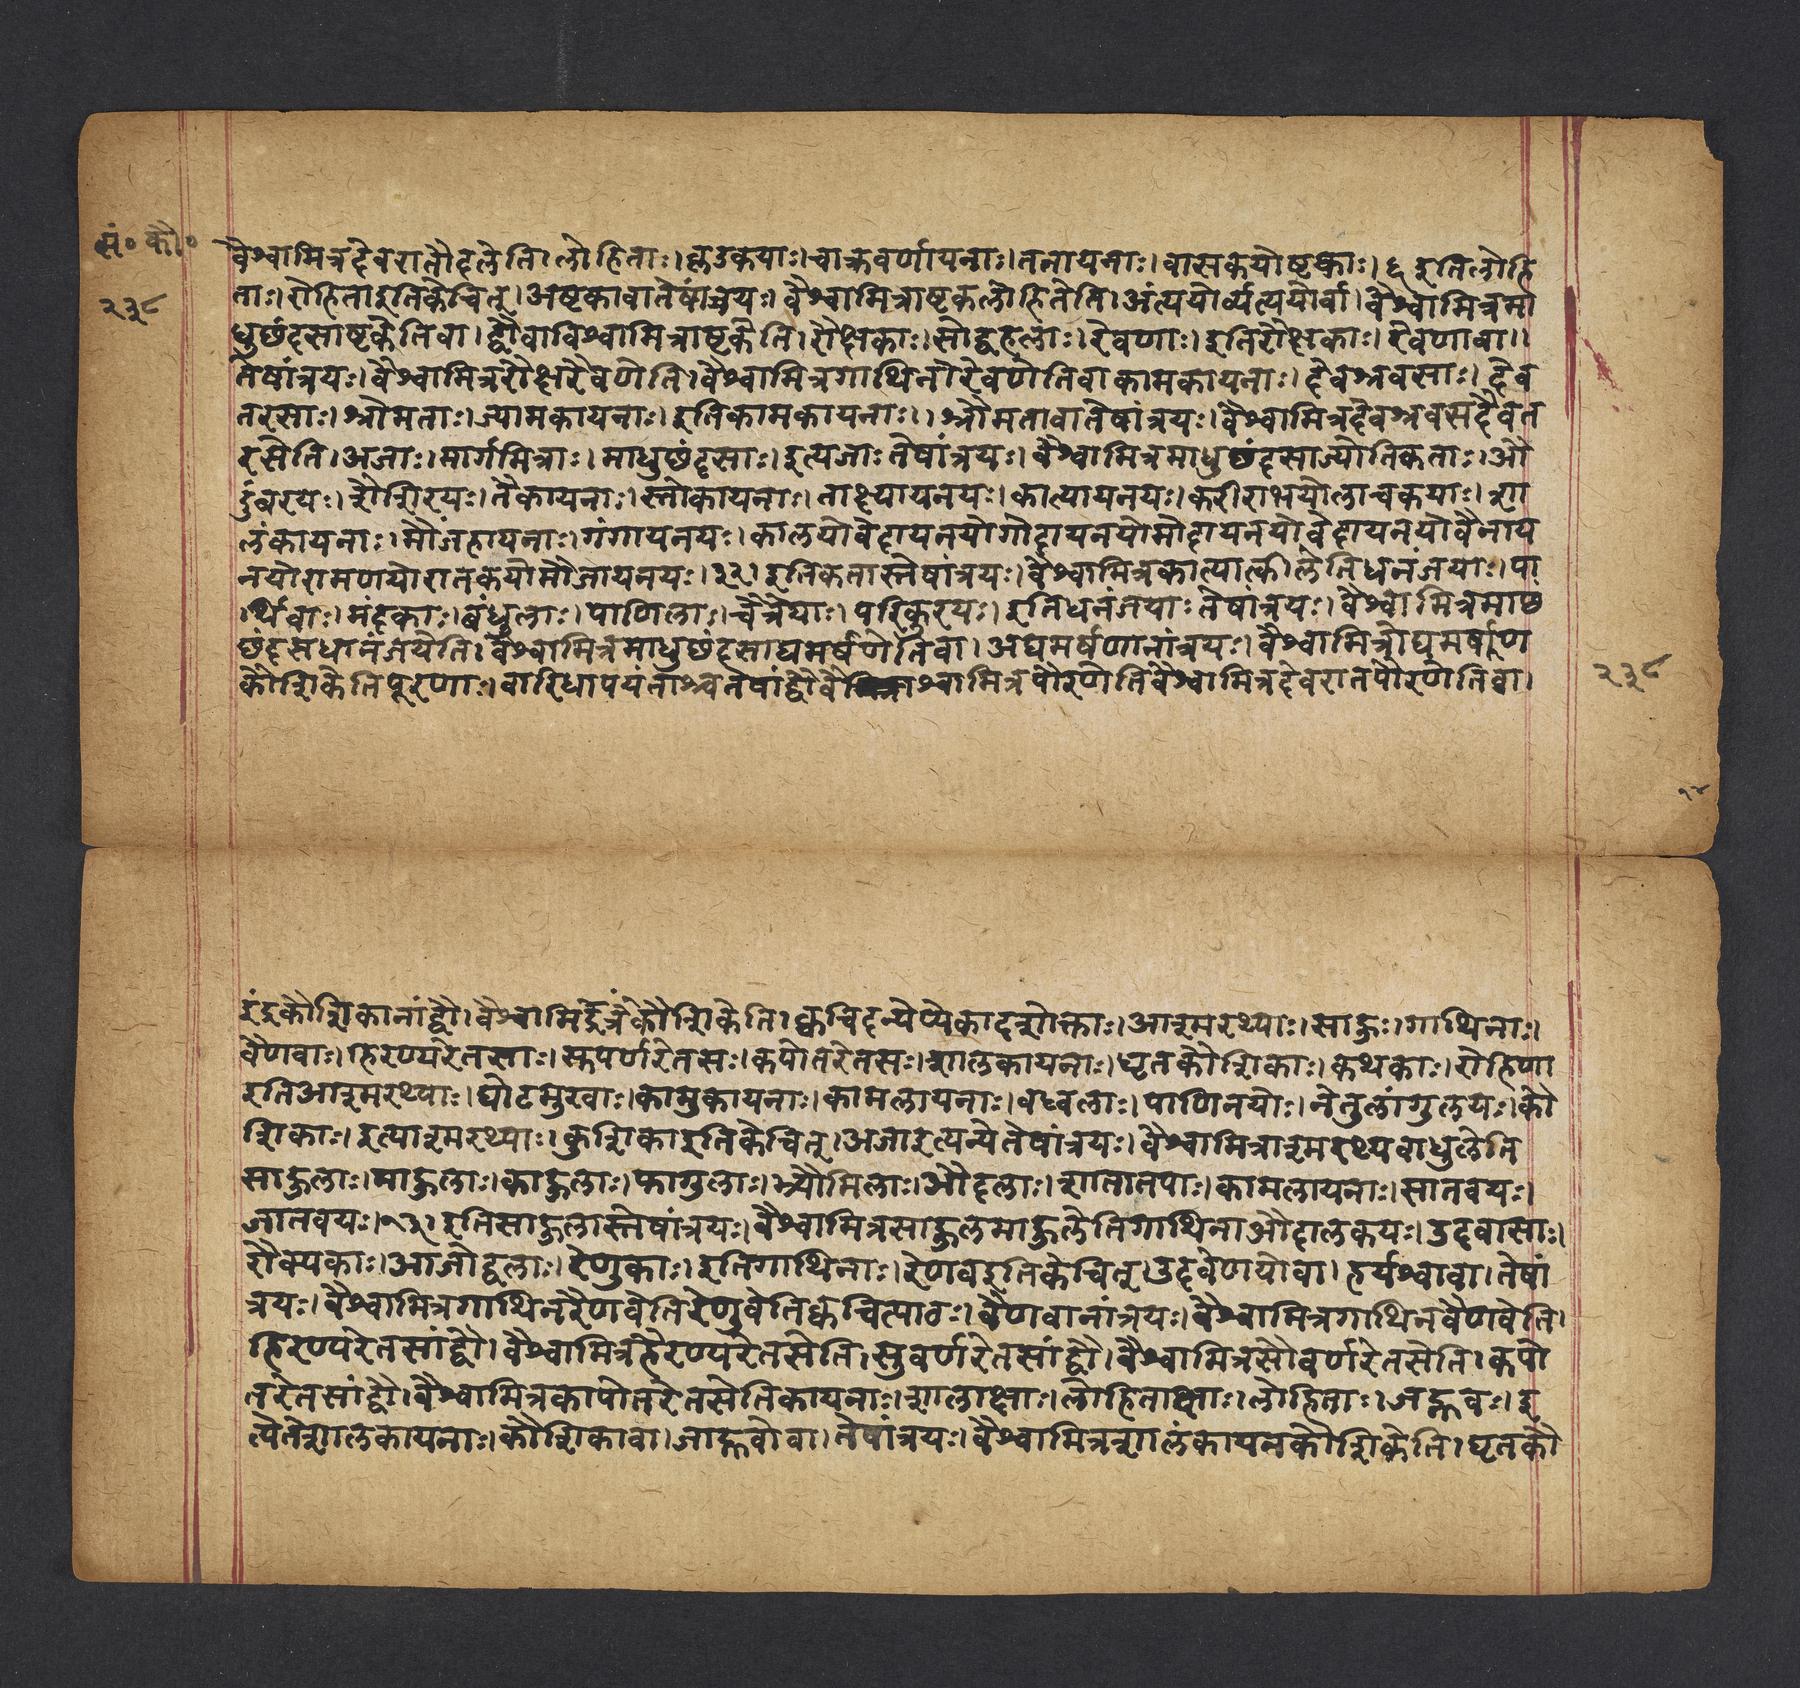 सं० कौ०
२३८
वैश्वामित्रदेवरातौदलेति। लोहिताः। कुडकयाः। चाक्रवर्णायनाः। ततायनाः। वासकयोष्टकाः। ६ इतिलोहि
ताः। रोहिताइतिकेचित्। अष्टकावातेषांत्रयः। वैश्वामित्राष्टकलौहितेति। अंत्ययोर्व्यत्ययोर्वा। वैश्वामित्रमा
धुछंदसाष्टकेतिवा। द्वौवाविश्वामित्राष्टकेति। रौक्षकाः। सोद्वहलाः। रेवणाः। इतिरौक्षकाः। रेवणावा।।
तेषांत्रयः। वैश्वामित्ररौक्षरैवणेति। वैश्वामित्रगाथिनौरेवणेतिवाकामकायनाः। देवश्रवसाः। देव
तरसाः। श्रौमताः। ज्यामकायनाः। इतिकामकायनाः।। श्रौमतावातेषांत्रयः। वैश्वामित्रदेवश्रवसदैवत
रसेति। अजाः। मार्गमित्राः। माधुछंदसाः। इत्यजाः तेषांत्रयः। वैश्वामित्रमाधुछंदसाज्येतिकताः। औ
दुंबरयः। शैशिरयः। तैकायनाः। स्तौकायनाः। तार्क्ष्यायनयः। कात्यायनयः। करीराभयोलान्वकयाः। शा
लंकायनाः। मौंजहायनाः। गंगायनयः। कालयोवेदायनयोगोदायनयोमोदायनयोवेदायनयोवैनाय
नयोरामणयोरातकयोमौजायनयः। ३२। इतिकतास्तेषांत्रयः। वैश्वामित्रकात्यात्कीलेतिधनंजयाः। पा
र्थिवाः। मंदकाः। बंधुलाः। पाणिलाः। चैत्रेयाः। परिकुरयः। इतिधनंजयाः तेषांत्रयः। वैश्वामित्रमाछ
छंदसधानंजयेति। वैश्वामित्रमाधुछंदसाघमर्षणेतिवा। अघमर्षणानांत्रयः। वैश्वामित्राघमर्षाण
कौशिकेतिपूरणाः। वारिधापयंताश्चतेषांद्वौवैश्वामित्रपौरणेतिवैश्वामित्रदेवरातपौरणेतिवा।
२३८
१४
इंद्रकौशिकानांद्वौ। वैश्वामित्रेंद्रकौशिकेति। क्वचिदन्येप्येकादशोक्ताः। आश्मरथ्याः। साहुः। गाथिनाः।
वैणवाः। हिरण्यरेतसाः। स्तपर्णरेतसः। कपोतरेतसः। शालकायनाः। घृतकौशिकाः। कथकाः। रोहिणा
इतिआश्मरथ्याः। घोटमुखाः। कामुकायनाः। कामलायनाः। बंधुलाः। पाणिनयोः। नेतुलांगुलयः। कौ
शिकाः। इत्याश्मरथ्याः। कुशिकाइतिकेचित्। अजाइत्यन्येतेषांत्रयः। वैश्वामित्राश्मरथ्यवाधुलेति
साहुलाः। माहुलाः। काहुलाः। फागुलाः। भ्यौमिलाः। औदलाः। शातातपाः। कामलायनाः। सातवयः।
जातवयः। १३। इतिसाहुलास्तेषांत्रयः। वैश्वामित्रसाहुलमाहुलेतिगाथिनाऔदालकयः। उदवासाः।
रौक्यकाः। आजोद्वलाः। रेणुकाः। इतिगाथिनाः। रेणवइतिकेचित्। उदवेणयोवा। हर्यश्वावा। तेषां
त्रयः। वैश्वामित्रगाथिनरैणवेतिरेणुवेतिक्वचित्पाठः। वैणवानांत्रयः। वैश्वामित्रगाथिनवैणवेति।
हिरण्यरेतसांद्वौ। वैश्वामित्रहैरण्यरेतसेति। सुवर्णरेतसांद्वौ। वैश्वामित्रसौवर्णरेतसेति। कपो
तरेतसांद्वौ। वैश्वामित्रकापोतरेतसेतिकायनाः। शालाक्षाः। लोहिताक्षाः। लोहिताः। जह्नवः। इ
त्येतेशालकायनाः। कौशिकावा। जाह्नवोवा। तेषांत्रयः। वैश्वामित्रशालंकायनकौशिकेति। घृतकौ